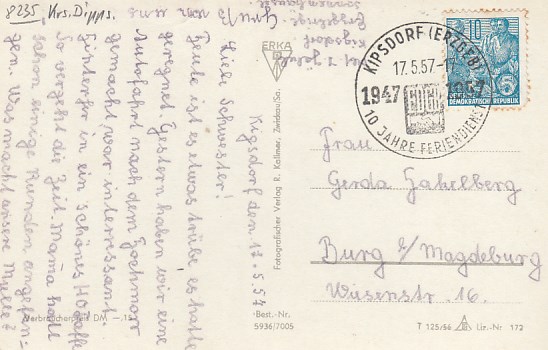 8235 Krs. Dipps.
Kipsdorf den 17.5.57
Liebe Schwester!
Heute ist es etwas trübe es hatte
geregnet. Gestern haben wir eine
Autofahrt nach dem Hochmoor
gemacht war interessant.
Hinterher in ein schönes HO Kaffe
So vergeht die Zeit. Mama hatt
schon einige Runden angefan-
gen. Was macht unsere Mulle?
Gruß von uns
ERKA
Fotografischer Verlag R. Kallmer, Zwickau/Sa.
Best.-Nr.
5936/7005
Verbraucherpreis DM —.15
KIPSDORF (ERZGEB)
17.5.57-17
1947 1957
10 JAHRE FERIENDIENST
10
DEUTSCHE
DEMOKRATISCHE REPUBLIK
Frau
Gerda Gakelberg
Burg b/Magdeburg
Wiesenstr. 16.
T 125/56 Liz.-Nr. 172